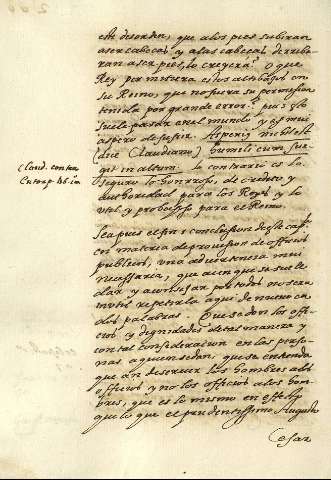 este desorden, que a los pies subiran
a ser cabeças y a las cabeças derriba-
ran a ser pies, lo creyera? O que
Rey permitiera estos altibajos en
su Reino, que no fuera su permission
tenida por grande error? pues esto
suele passar en el mundo y es mui
aspero de sufrir. Asperius nihil est
(dice Claudiano) humili cum sur-
git in altum. lo contrario es lo
seguro lo honrroso, de credito y
authoridad para los Reyes y lo
util y probechoso para el Reino.
Claud. contra
Eutrop. lib. 1
Sea pues el fin i conclusion deste cap.
en materia de provision de officios
publicos, una advertencia mui
necessaria, que aunque sa sue le
dar y aconsejar por todos no sera
inutil repetirla aqui de nuevo en
dos palabras. Que se den los offi-
cios y dignidades de tal manera y
con tal consideracion en las perso-
nas a quien se dan, que se entienda
que an de servir los hombres a los
officios y no los officios a los hom-
bres, que es lo mismo en effecto
que lo que el prudentissimo Augusto
Cesar